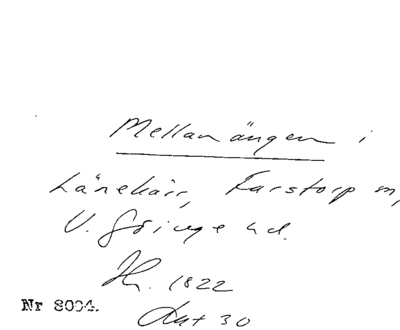 Mellanängen i
Länekärr, Farstorp m,
V. Göinge hd.
Hr. 1822
Nr 8004.
Lat 30